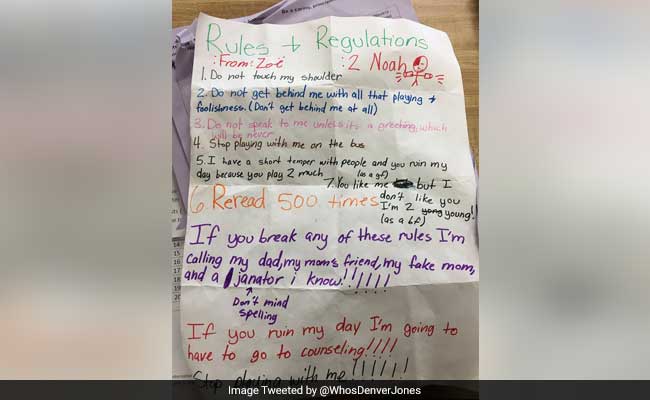 Rules + Regulations
:From: Zoë
:2 Noah
1. Do not touch my shoulder
2. Do not get behind me with all that playing +
foolishness. (Don't get behind me at all)
3. Do not speak to me unless its a greeting, which
will be never
4. Stop playing with me on the bus
5. I have a short temper with people and you ruin my
day because you play 2 much
6. Reread 500 times
7. You like me (as a gf) but I
don't like you
I'm 2 young!
(as a bf)
If you break any of these rules I'm
calling my dad, my mom's friend, my fake mom,
and a janator i know!!!!!!
Don't mind
spelling
If you ruin my day I'm going to
have to go to counseling!!!!
Stop playing with me!!!!!!
14
15
16
17
18
19
20
Image Tweeted by @WhosDenverJones